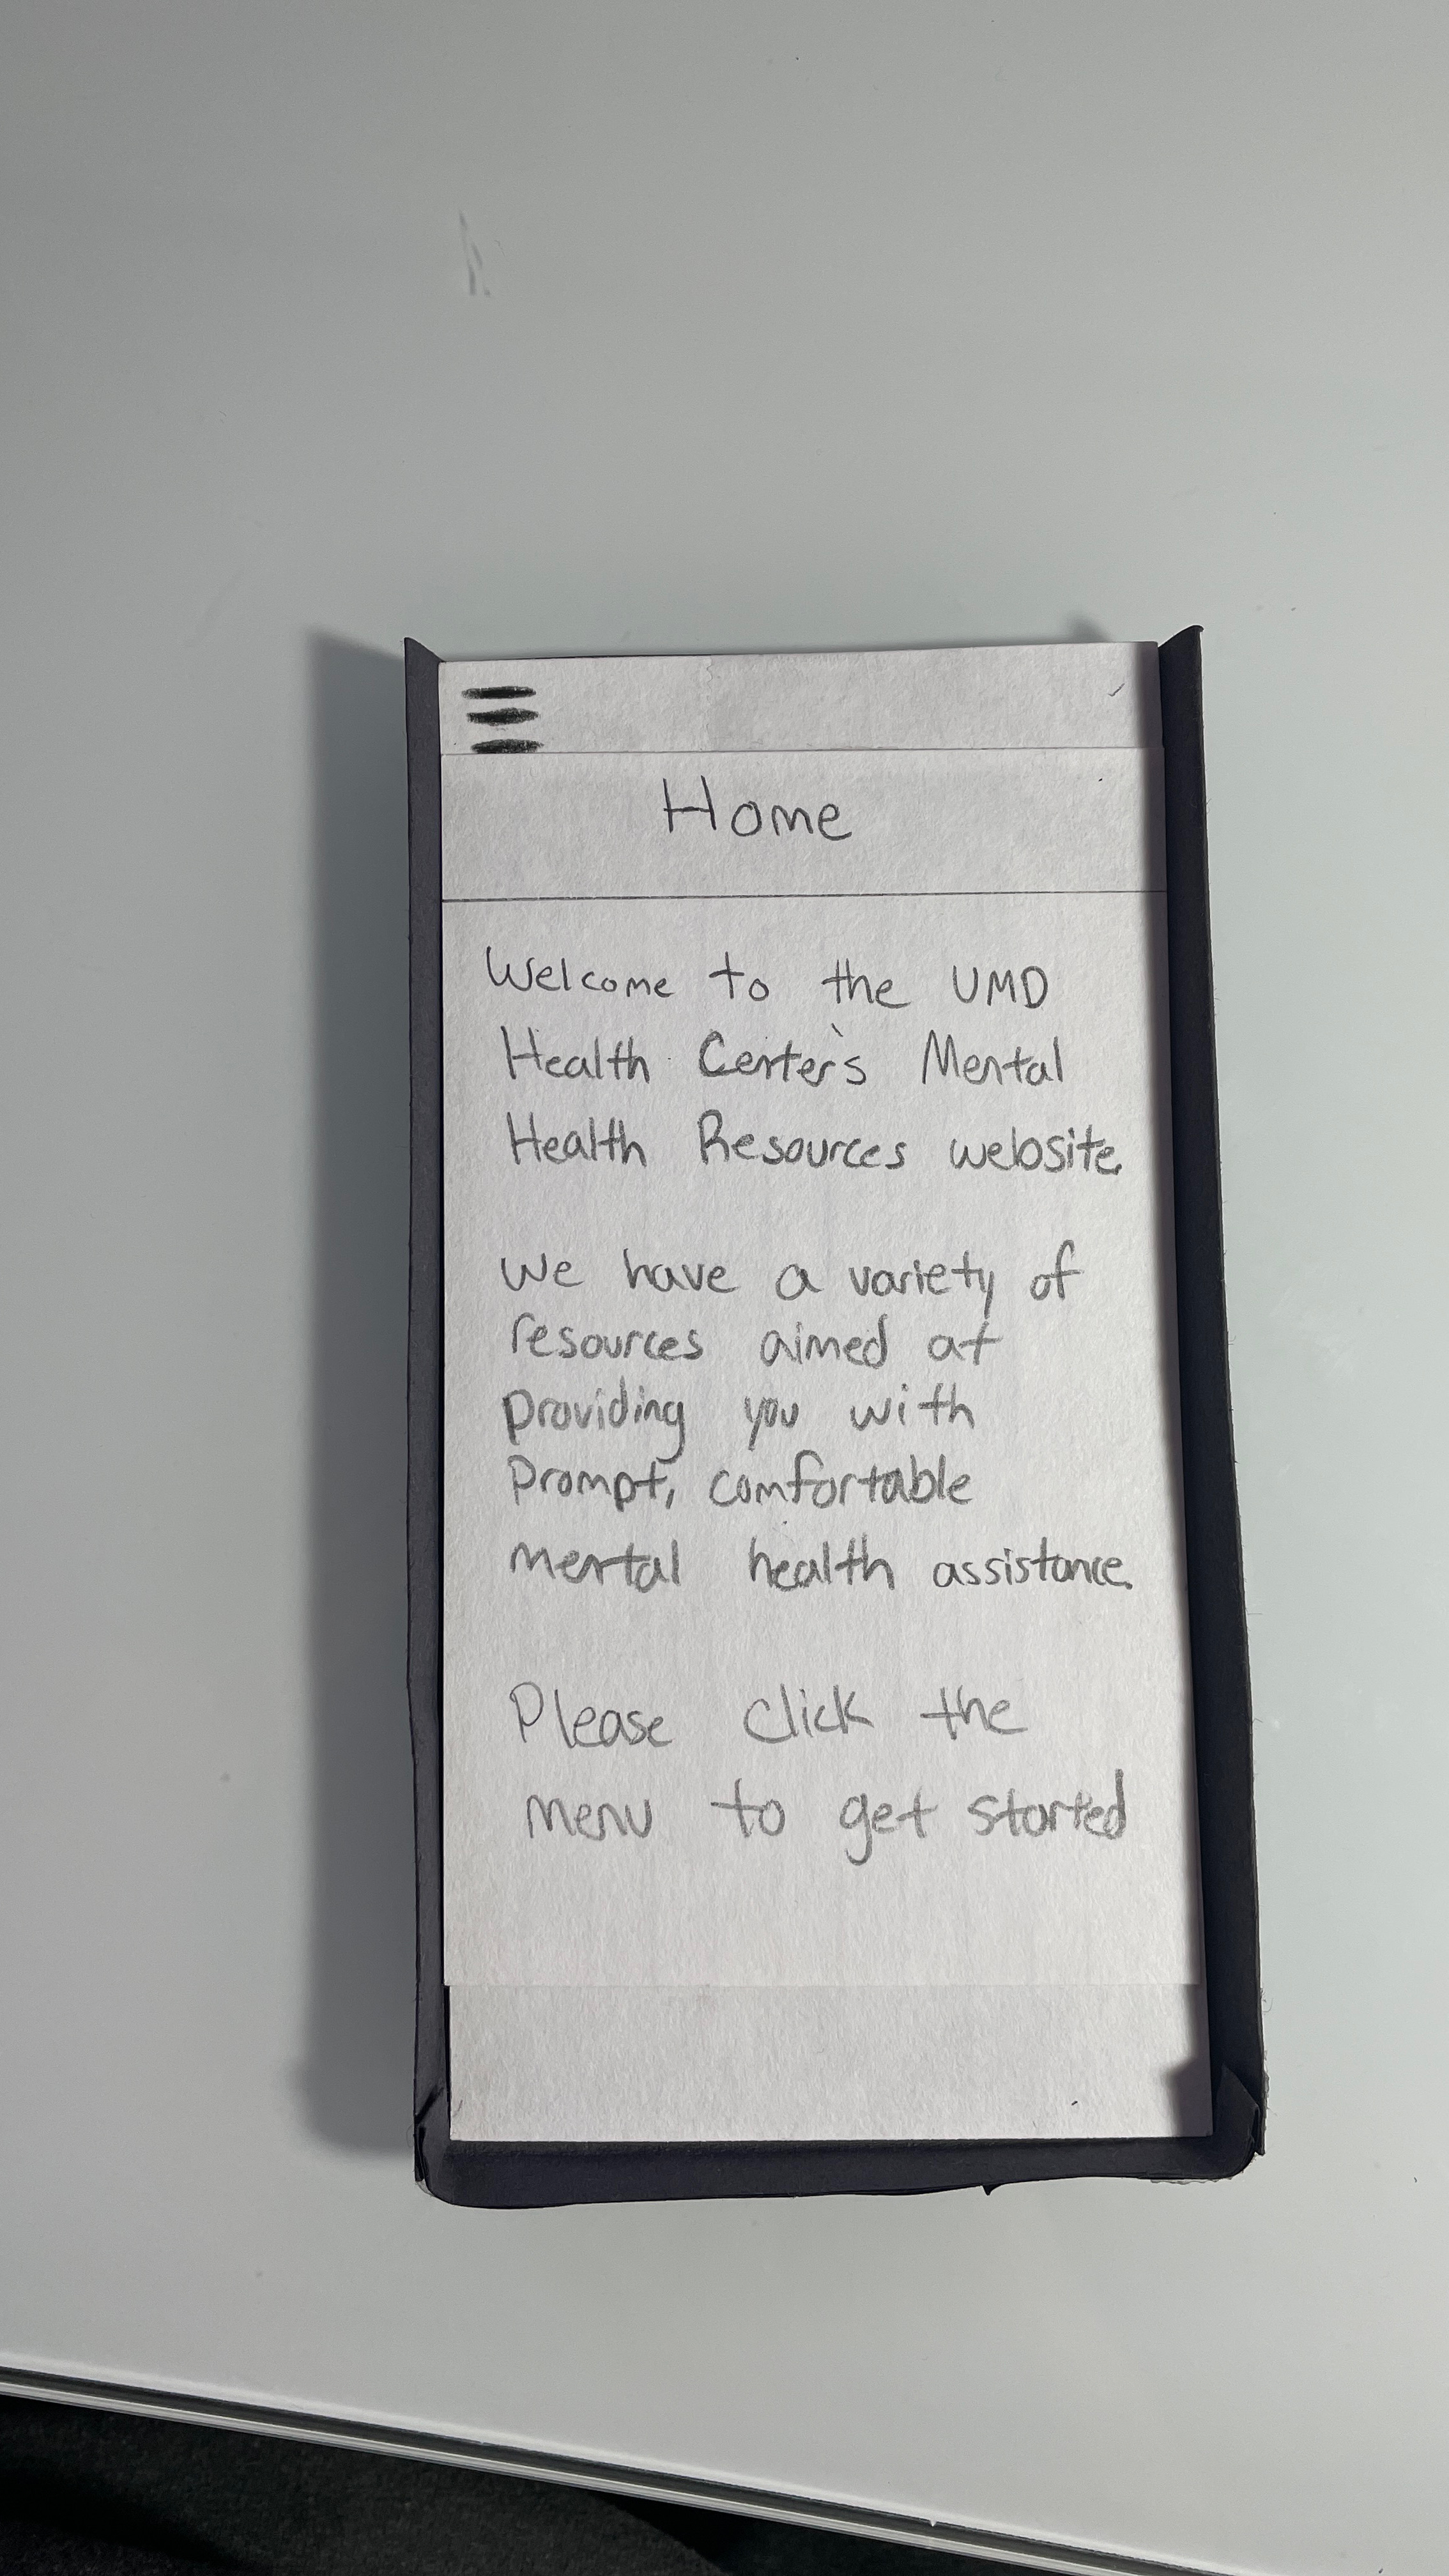 Home
Welcome to the UMD
Health Center's Mental
Health Resources website.
We have a variety of
resources aimed at
providing you with
prompt, comfortable
mental health assistance.
Please click the
menu to get started